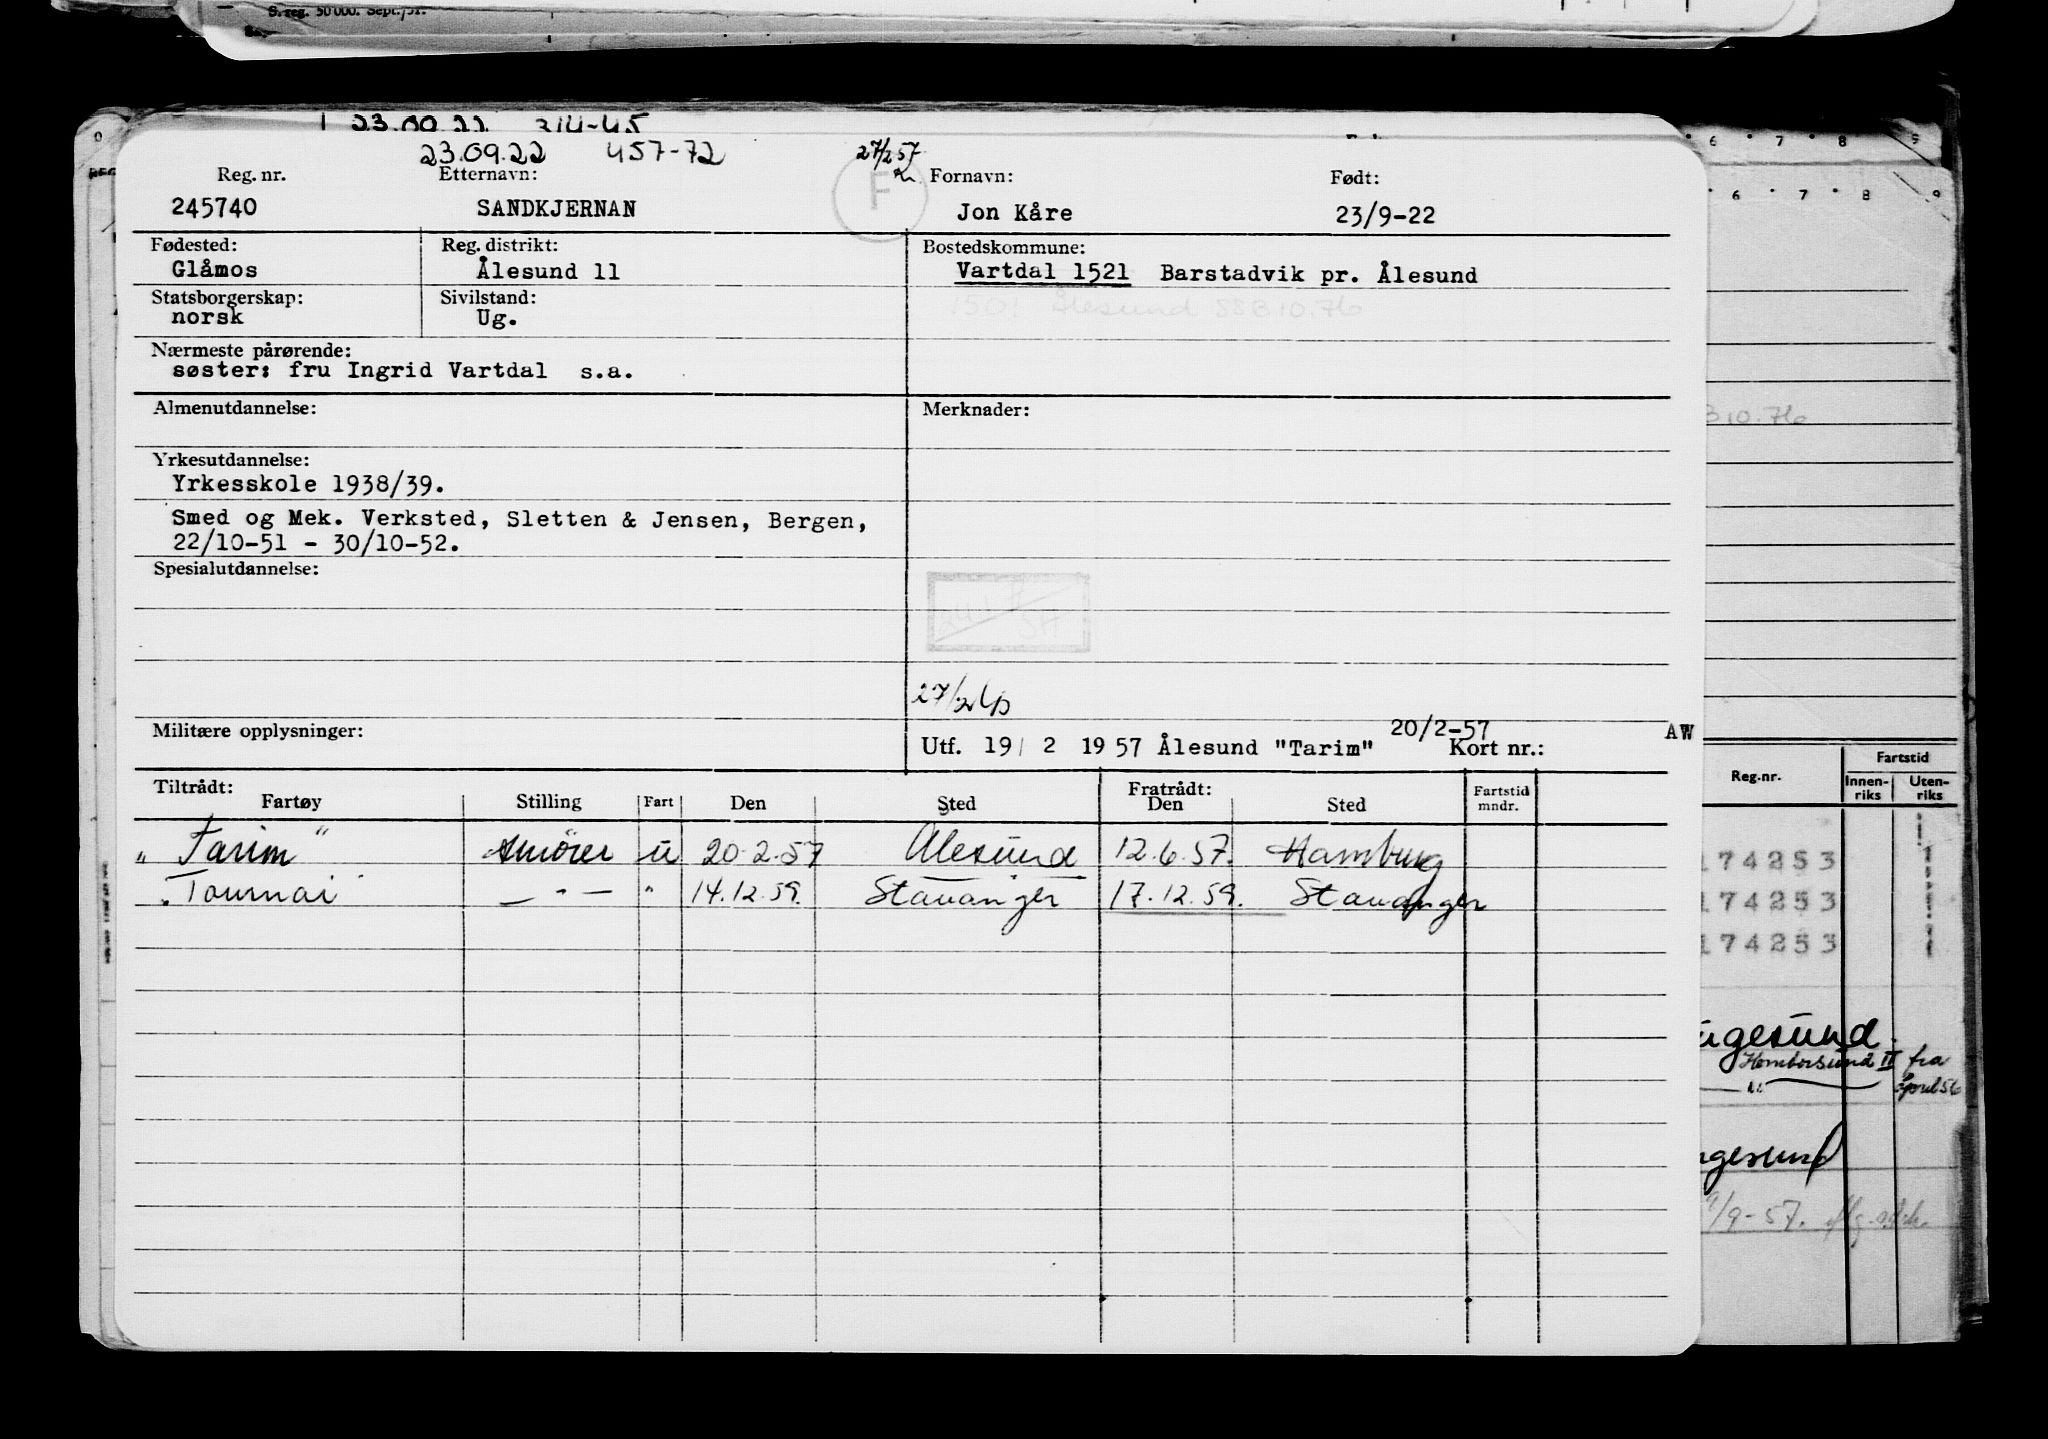 S. reg. 50 000. Sept./51.
23.09.22 457-72 27/2 57
Reg. nr. Etternavn: F Fornavn: Født:
245740 SANDKJERNAN Jon Kåre 23/9-22
Fødested: Reg. distrikt: Bostedskommune:
Glåmos Ålesund 11 Vartdal 1521 Barstadvik pr. Ålesund
Statsborgerskap: Sivilstand: 1501 Ålesund SSB 10.76
norsk Ug.
Nærmeste pårørende:
søster: fru Ingrid Vartdal s.a.
Almenutdannelse: Merknader:
B 10.76
Yrkesutdannelse:
Yrkesskole 1938/39.
Smed og Mek. Verksted, Sletten & Jensen, Bergen,
22/10-51 - 30/10-52.
Spesialutdannelse:
27/2
Militære opplysninger: 20/2-57 AW
Utf. 19/ 2 1957 Ålesund "Tarim" Kort nr.:
Tiltrådt: Fratrådt:
Fartøy Stilling Fart Den Sted Den Sted Fartstid mndr.
"Tarim" Smører u 20.2.57 Ålesund 12.6.57. Hamburg
"Tournai" —"— " 14.12.59. Stavanger 17.12.59. Stavanger
Reg.nr. Fartstid
Innen-riks Uten-riks
174253
174253
174253
ugesund
Homborsund II fra
april 56
ngesund
9/9-57.